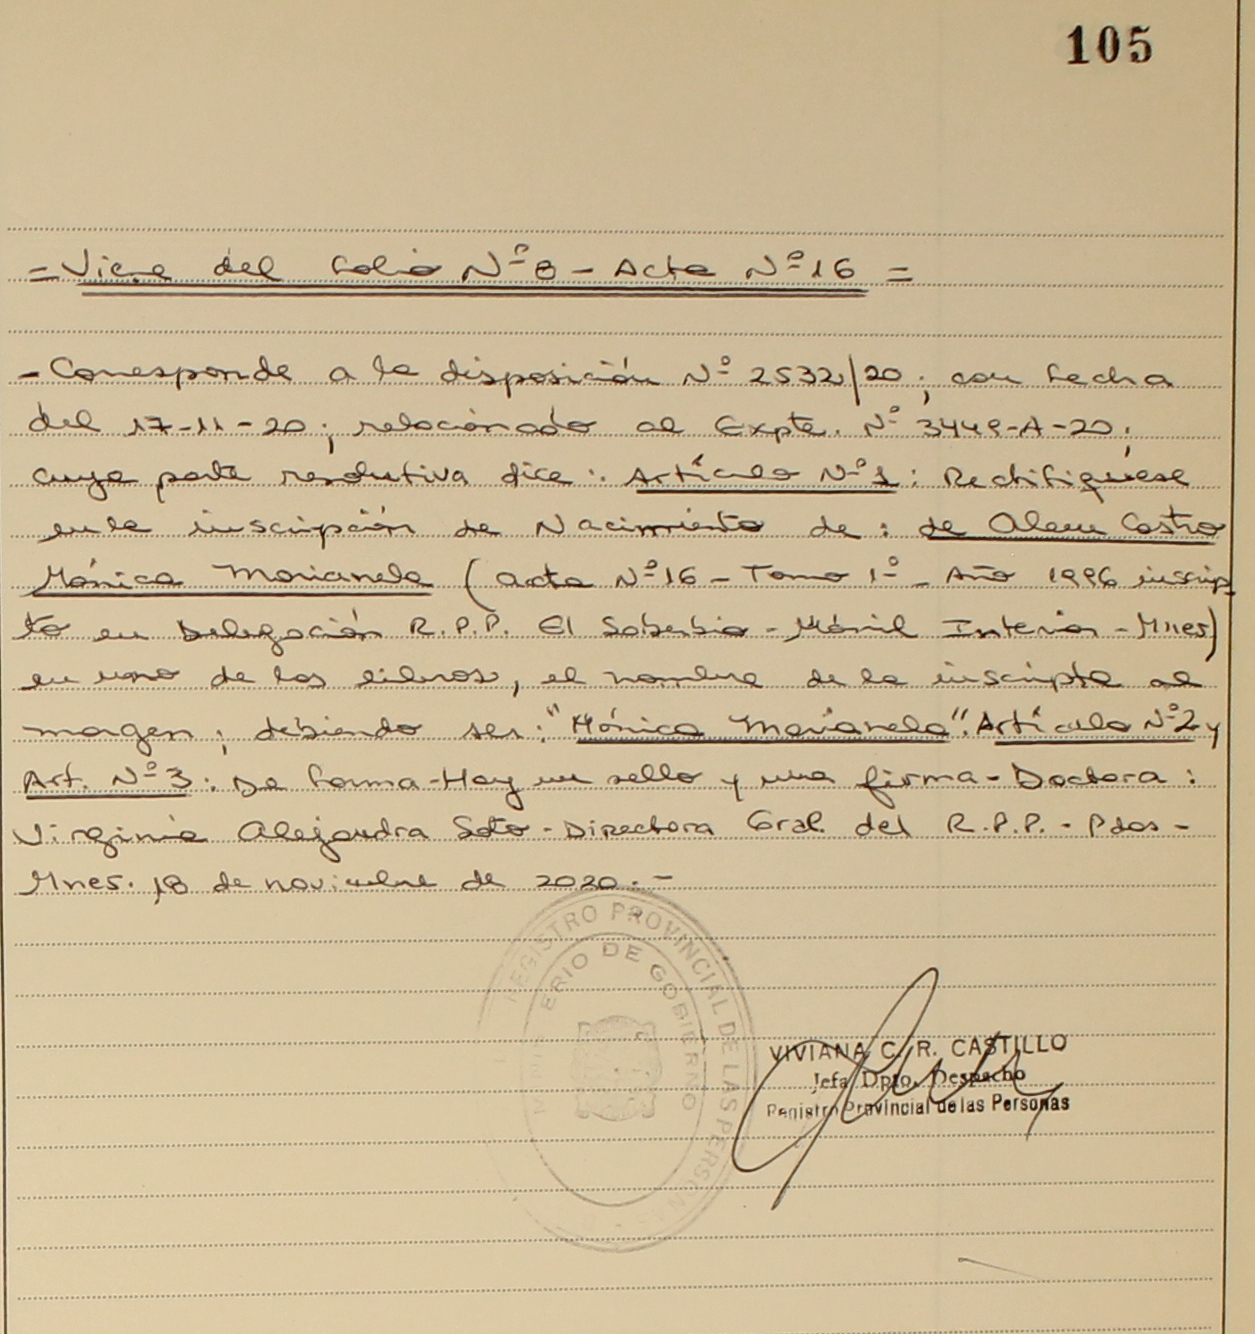 105
= Viene del folio Nº 8 - Acta Nº 16 =
- Corresponde a la disposición Nº 2532/20; con fecha
del 17-11-20; relacionado al Expte. Nº 3449-A-20;
cuya parte resolutiva dice: Artículo Nº 1: Rectifíquese
en la inscripción de Nacimiento de: de Olem Castro
Mónica Marianela (acta Nº 16 - Tomo 1º - Año 1996 inscrip
to en Delegación R.P.P. El Soberbio - Móvil Interior - Mnes)
en uno de los libros, el nombre de la inscripta al
margen; debiendo ser: "Mónica Marianela". Artículo Nº 2 y
Art. Nº 3: De forma - Hay un sello y una firma - Doctora:
Virginia Alejandra Soto - Directora Gral. del R.P.P. - Pdas -
Mnes. 18 de noviembre de 2020. -
REGISTRO PROVINCIAL DE LAS PERSONAS
MINISTERIO DE GOBIERNO
VIVIANA C. R. CASTILLO
Jefa Dpto. Despacho
Registro Provincial de las Personas